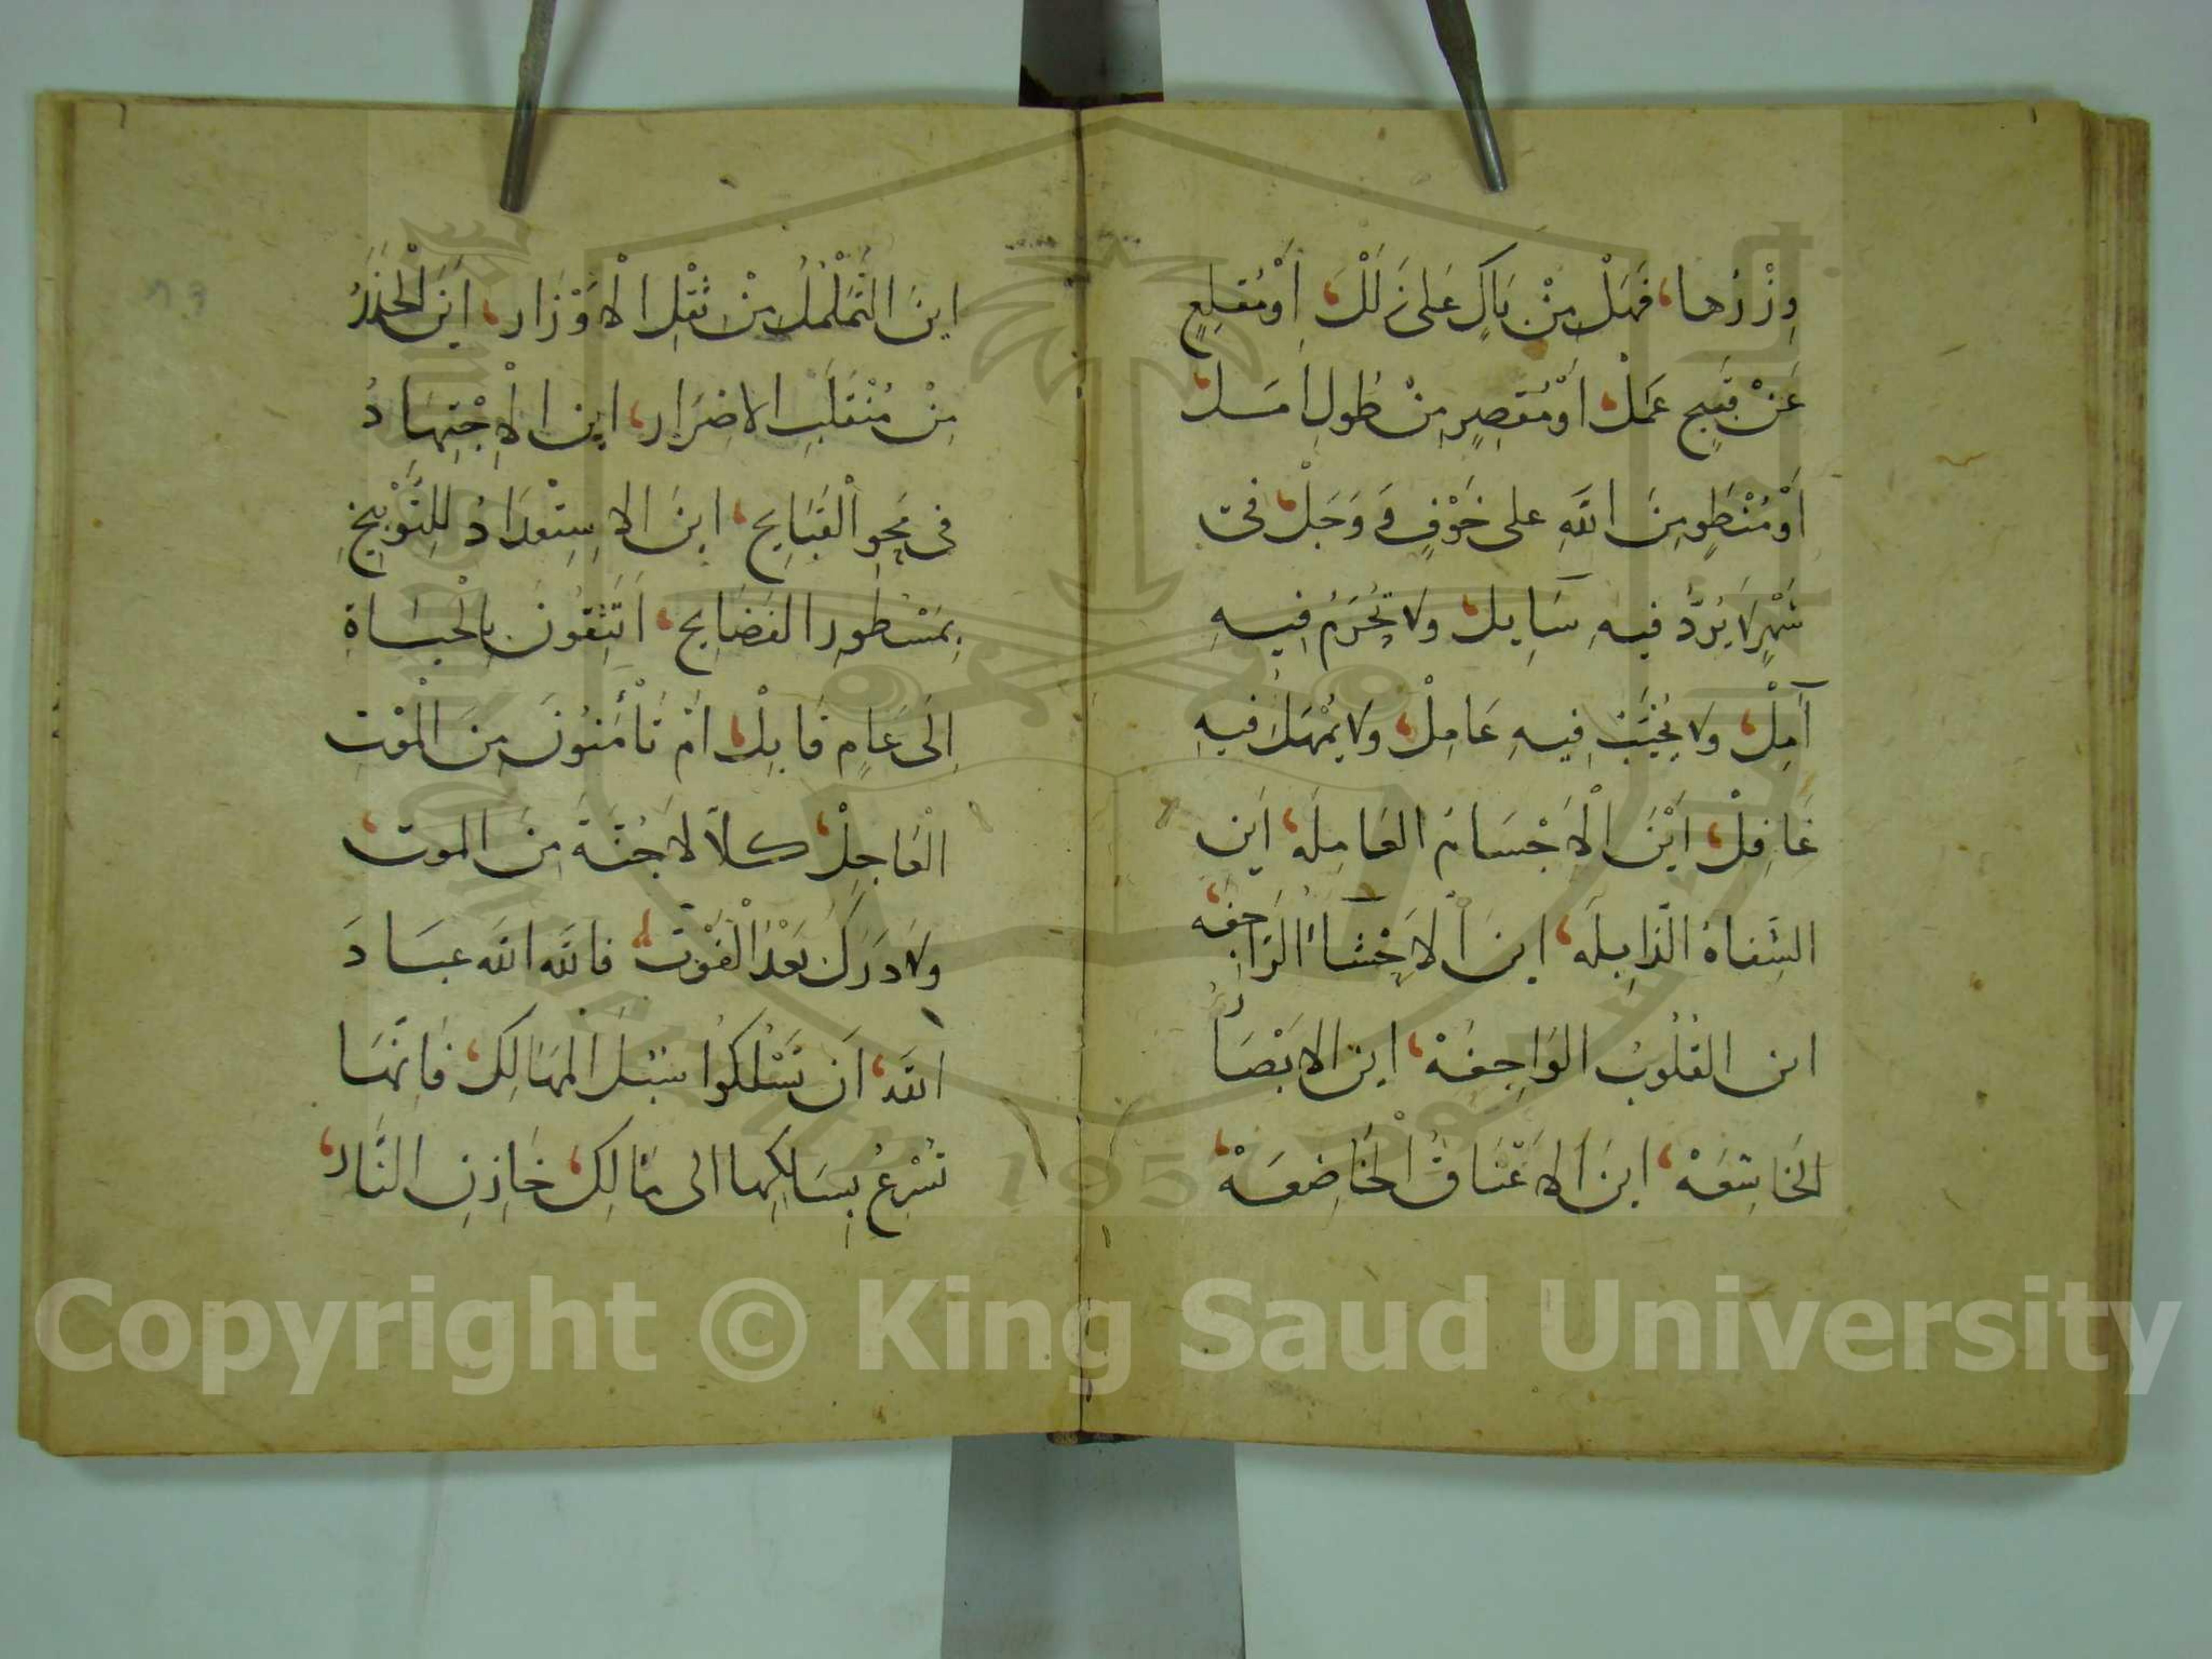 وِزْرُها، فَهَلْ مِنْ بَاكٍ عَلى زَلَلْ، أَوْ مُقلِعٍ
عَنْ قَبيحِ عَمَلْ، أَوْ مُقصِرٍ مِنْ طُولِ امَل،
أَوْ مُنْطَوٍ مِنَ اللّٰهِ على خَوْفٍ وَ وَجَلْ، فى
شَهْرٍ لَا يُرَدُّ فيهِ سَايِل، ولا يُحْرَمُ فِيهِ
آمِلْ، ولا يُخَيَّبُ فِيهِ عَامِلْ، ولا يُمْهَلُ فيهِ
غَافِلْ، أَيْنَ الْاَجْسَامُ العَامِلَه، اَين
الشِفاهُ الذّابِلَه، اينَ الاَحْشَآءُ الرَّاجِفه،
اين القُلُوبُ الوَاجِفَهْ، اين الابْصَارُ
الخَاشِعَهْ، اينَ الاَعْنَاقُ الْخَاضِعَهْ،
اينَ التَّمَلْمُلُ مِنْ ثقْلِ الْاَوْزَار، اَيْنَ الْحَذَرُ
مِنْ مُنْقَلَبِ الاضرَارِ، اين الْاِجْتِهَادُ
فى مَحْوِ الْقَبَايِحِ، اينَ الاِسِتْعدَادُ لِلتَّوْبيخِ
بِمَسْطُورِ الفَضَايِح، اَتَثِقُونَ بِالْحَيَاةِ
اِلَى عَامٍ قَابِلْ، امْ تَأْمَنُونَ مِنَ الْمَوْتِ
الْعَاجِلْ، كلاَّ لَا جُنَّةَ مِنَ الموت،
ولا دَرَكَ بَعْدَ الْفَوْتْ، فاللّٰه اللّٰه عبَادَ
اللّٰهِ، اَن تَسْلُكُوا سُبُلَ المهَالِك، فَاِنَّهَا
تُسْرِعُ بِسَالِكِها الى مَالِك، خَازِنِ النَّار،
Copyright © King Saud University
1957